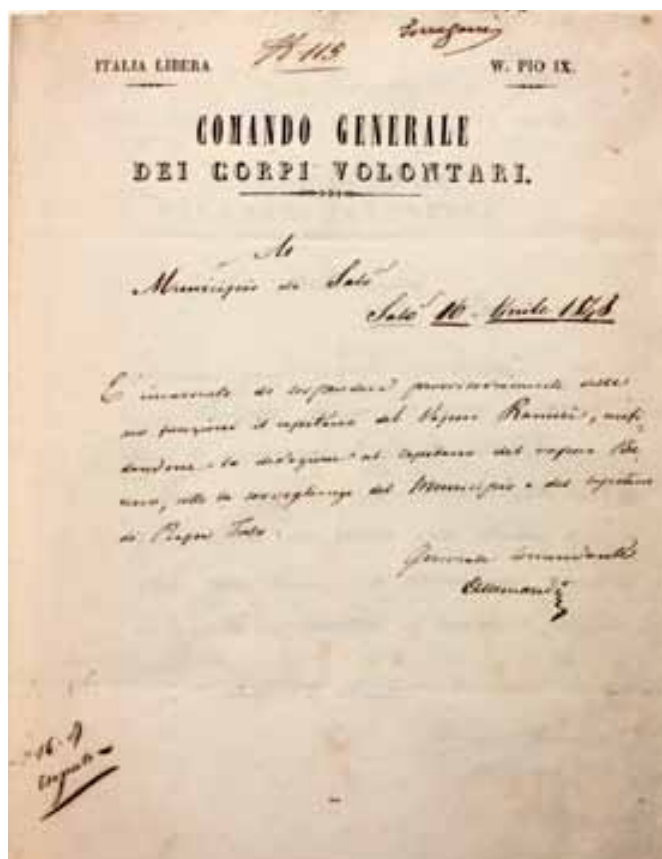 N 113
ITALIA LIBERA
W. PIO IX.
COMANDO GENERALE
DEI CORPI VOLONTARI.
Al
Municipio di Salò
Salò 16 Aprile 1848
E' incaricato di sospendere provvisoriamente dalle
sue funzioni il capitano del Vapore Ranieri, affi-
dandone la direzione al capitano del vapore
sotto la sorveglianza del Municipio e del capitano
di
Generale Comandante
Allemandi
16. 4